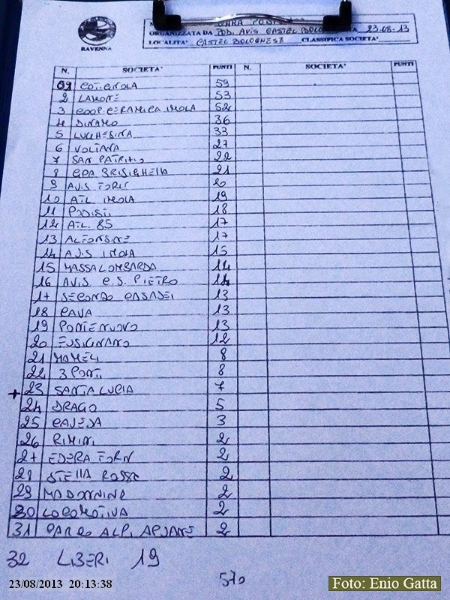 RAVENNA
ORGANIZZATA DA POD. AVIS CASTEL BOLOGNESE 23-08-13
LOCALITA' CASTEL BOLOGNESE CLASSIFICA SOCIETA'
N. SOCIETA' PUNTI N. SOCIETA' PUNTI
01 COTIGNOLA 59
2 LAMONE 53
3 COOP CERAMICA IMOLA 52
4 DINAMO 36
5 LUGHESINA 33
6 VOLTANA 27
7 SAN PATRIZIO 22
8 GPA BRISIGHELLA 21
9 AVIS FORLI 20
10 ATL. IMOLA 19
11 PODISTI 18
12 ATL. 85 17
13 ALFONSINE 17
14 AVIS IMOLA 15
15 MASSALOMBARDA 14
16 AVIS C.S. PIETRO 14
17 SECONDO CASADEI 13
18 CAVA 13
19 PONTENUOVO 13
20 FUSIGNANO 12
21 MAMELI 8
22 3 PONTI 8
23 SANTA LUCIA 7
24 DRAGO 5
25 CAVEJA 3
26 RIMINI 2
27 EDERA FORLI 2
28 STELLA ROSSA 2
29 MADONNINA 2
30 LOCOMOTIVA 2
31 PARCO ALPI APUANE 2
32 LIBERI 19
570
23/08/2013 20:13:38
Foto: Enio Gatta